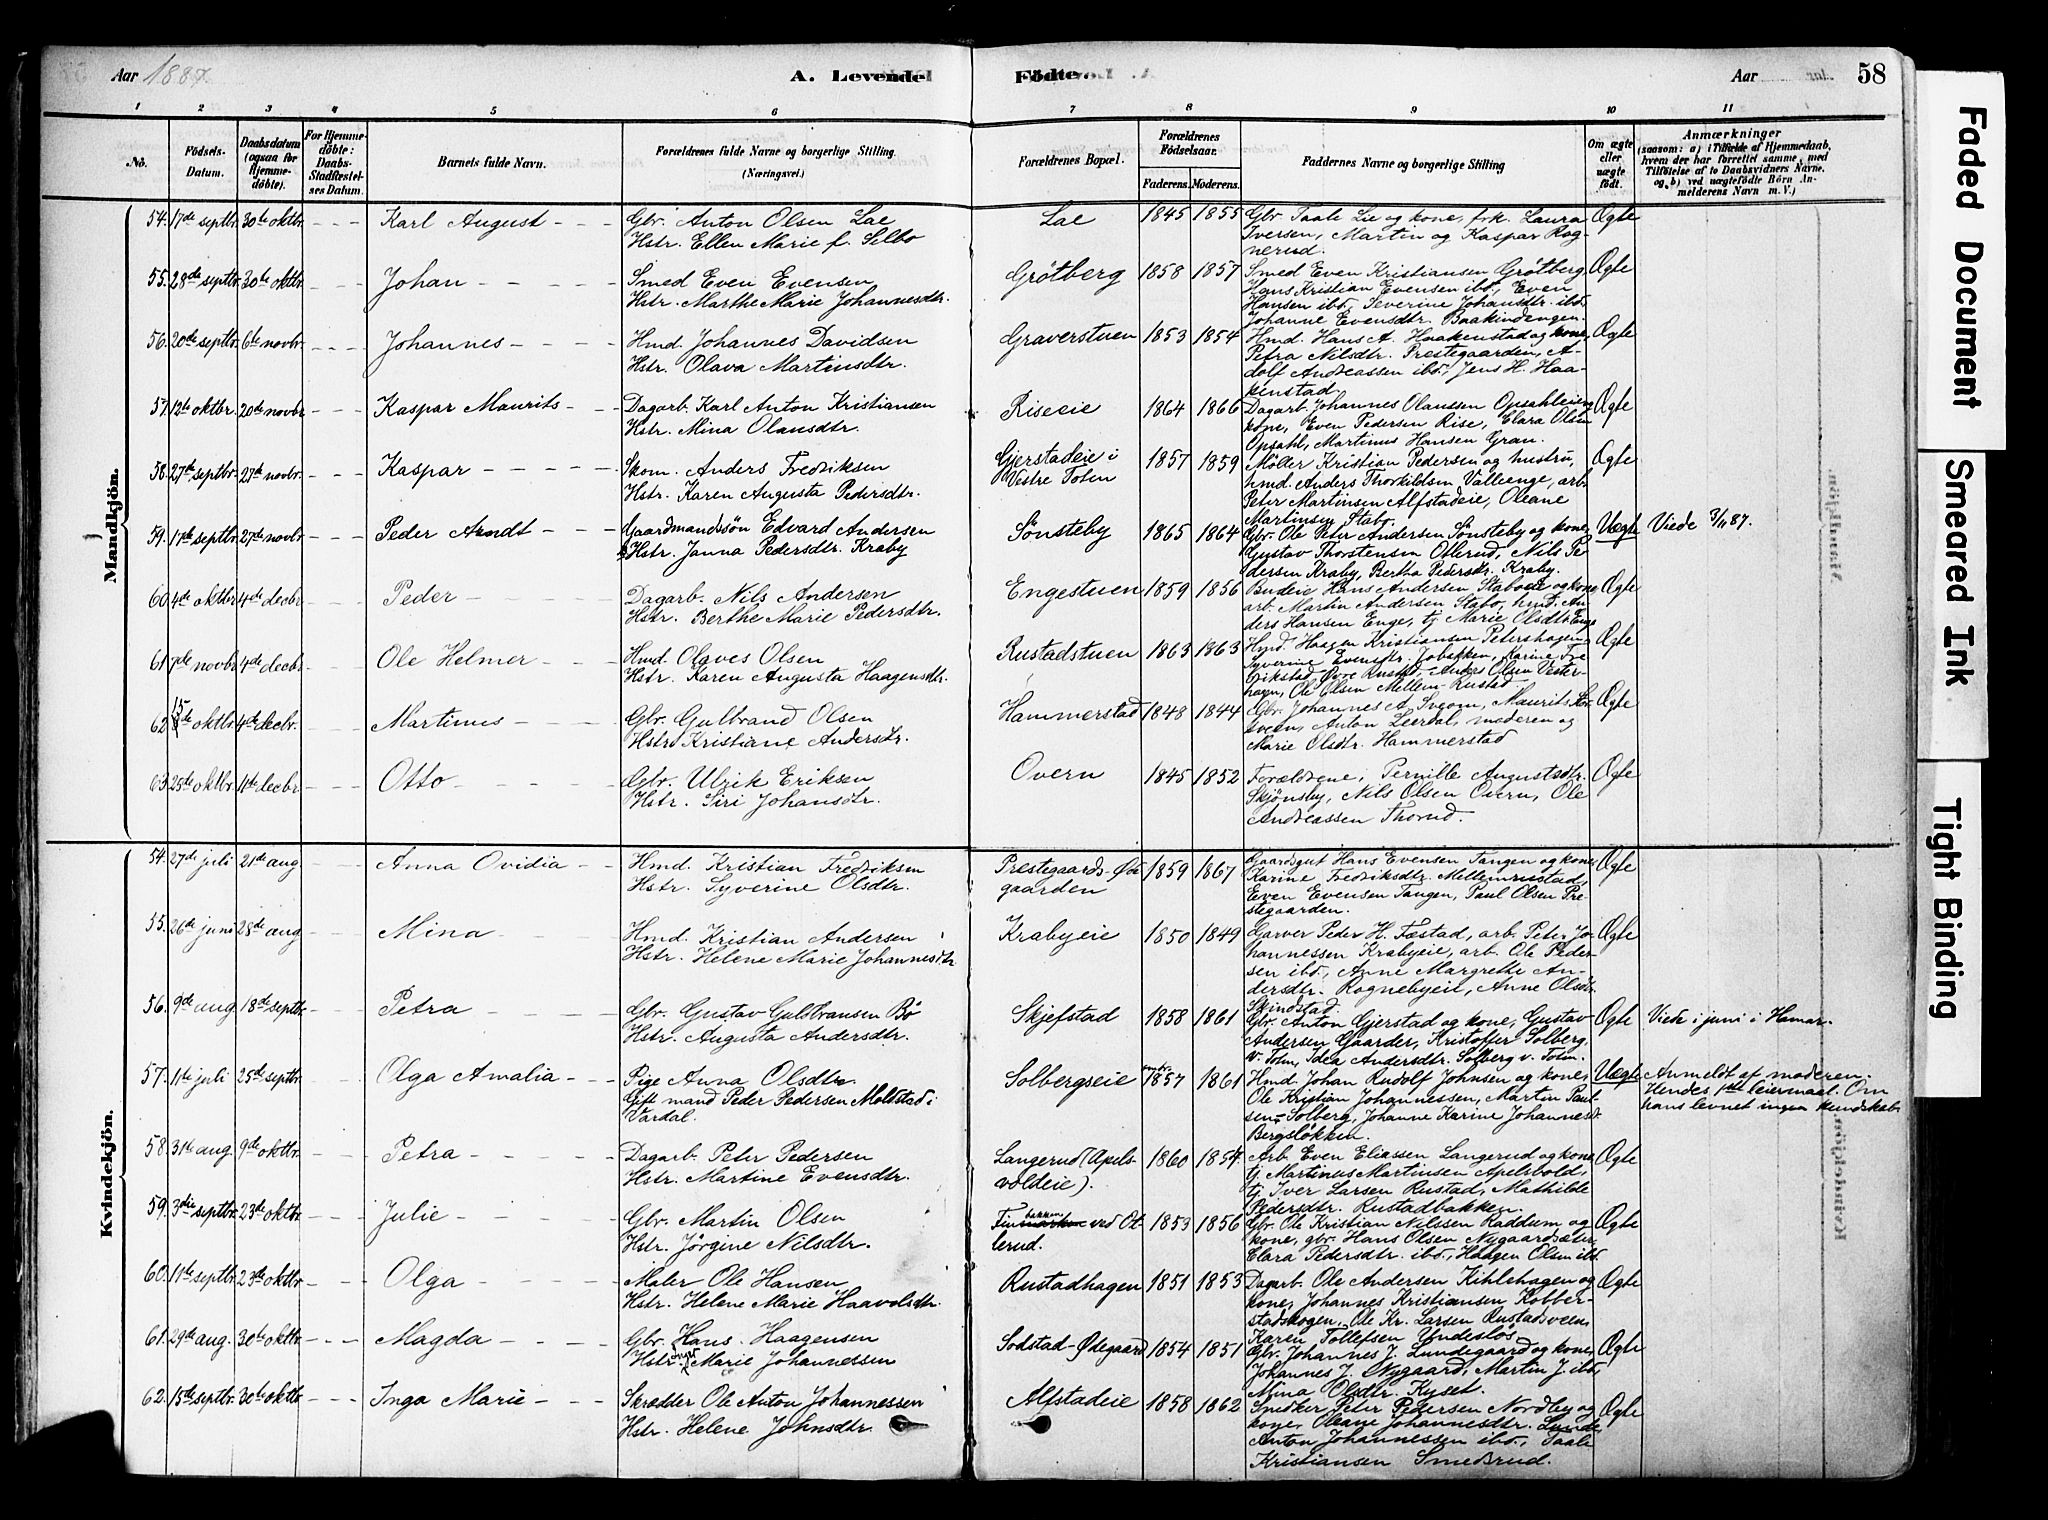 Aar 1887. A. Levende Födte. Aar 58
1 2 3 4 5 6 7 8 9 10 11
No. Födsels-Datum. Daabsdatum (ogsaa for Hjemmedöbte). For Hjemmedöbte: Daabs-Stadfæstelses Datum. Barnets fulde Navn. Forældrenes fulde Navne og borgerlige Stilling. (Næringsvei.) Forældrenes Bopæl. Forældrenes Födselsaar. Faderens. Moderens. Faddernes Navne og borgerlige Stilling Om ægte eller uægte födt. Anmærkninger (saasom: a) i Tilfælde af Hjemmedaab, hvem der har forrettet samme, med Tilföielse af to Daabsvidners Navne, og b) ved uægtefödte Börn Anmelderens Navn m. V.)
Mandkjön.
54. 17de septbr. 30te oktbr. Karl August Gbr. Anton Olsen Lae Lae 1845 1855 Gbr. Taale Lie og kone, frk. Laura Ægte
Hstr. Ellen Marie f. Selbo Iversen, Martin og Kaspar Rog-
nerud.
55. 28de septbr. 30te oktbr. Johan Smed Even Evensen Grötberg 1858 1857 Smed Even Kristiansen Grötberg, Ægte
Hstr. Marthe Marie Johannesdtr. Hans Kristian Evensen ibd., Even
Hansen ibd., Severine Johansdtr. ibd.
Johanne Evensdtr. Baakindengen.
56. 20de septbr. 6te novbr. Johannes Hmd. Johannes Davidsen Graverstuen 1853 1854 Hmd. Hans A. Haakenstad og kone, Ægte
Hstr. Olava Martinsdtr. Petra Nilsdtr. Prestegaarden, A-
dolf Andreassen ibd., Jens H. Haa-
kenstad.
57. 12te oktbr. 20de novbr. Kaspar Maurits Dagarb. Karl Anton Kristiansen Riseeie 1864 1866 Dagarb. Johannes Olaussen Opsahleien Ægte
Hstr. Mina Olausdtr. kone, Even Pedersen Rise, Clara Olsen
Opsahl, Martinus Hansen Gran.
58. 27de septbr. 27de novbr. Kaspar Skom. Anders Fredriksen Gjerstadeie i 1857 1859 Möller Kristian Pedersen og hustru, Ægte
Hstr. Karen Augusta Pedersdtr. Vestre Toten hmd. Anders Thorkildsen Valleenge, arb.
Peter Martinsen Alfstadeie, Oleane
Martinsen Stabo.
59. 17de septbr. 27de novbr. Peder Arndt Gaardmandssön Edvard Andersen Sönsteby 1865 1864 Gbr. Ole Peter Andersen Sönsteby og kone, Uægte Viede 3/11 87.
Hstr. Janna Pedersdtr. Kraby Gustav Thorstensen Otlerud, Nils Pe-
dersen Kraby, Bertha Pedersdtr. Kraby.
60. 4de oktbr. 4de decbr. Peder Dagarb. Nils Andersen Engestuen 1859 1856 Hans Andersen Staboeie og kone Ægte
Hstr. Berthe Marie Pedersdtr. arb. Martin Andersen Stabo, hmd. An-
ders Hansen Enge, tj. Marie Olsdtr. Enge
61. 7de novbr. 4de decbr. Ole Helmer Hmd. Olaves Olsen Rustadstuen 1863 1863 Hmd. Haagen Kristiansen Petershagen, Ægte
Hstr. Karen Augusta Haagensdtr. Syverine Evensdtr. Jobakken, Karine Fre-
Rustad, Anders Olsen Vester-
hagen, Ole Olsen Mellem-Rustad
62. 15de oktbr. 4de decbr. Martinus Gbr. Gulbrand Olsen Hammerstad 1848 1844 Gbr. Johannes A. Sveom, Maurits Stor- Ægte
Hstr. Kristiane Andersdtr. sveen, Anton Leerdal, moderen og
Marie Olsdtr. Hammerstad
63. 25de oktbr. 11te decbr. Otto Gbr. Ulrik Eriksen Overn 1845 1852 Forældrene, Pernille Augustsdtr. Ægte
Hstr. Siri Johansdtr. Skjönsby, Nils Olsen Overn, Ole
Andreassen Thorud.
Kvindekjön.
54. 27de juli 21de aug. Anna Ovidia Hmd. Kristian Fredriksen Prestegaards-Öde 1859 1867 Gaardsgut Hans Evensen Tangen og kone, Ægte
Hstr. Syverine Olsdtr. gaarden Karine Fredriksdtr. Mellemrustad,
Even Evensen Tangen, Paul Olsen Pre-
stegaarden.
55. 26de juni 28de aug. Mina Hmd. Kristian Andersen Krabyeie 1850 1849 Garver Peder H. Fæstad, arb. Peter Jo- Ægte
Hstr. Helene Marie Johannesdtr hannessen Krabyeie, arb. Ole Peder-
sen ibd., Anne Margrethe An-
dersdtr. Rognebyeie, Anne Olsdtr.
Skindstad.
56. 9de aug. 18de septbr. Petra Gbr. Gustav Gulbransen Bö Skjefstad 1858 1861 Gbr. Anton Gjerstad og kone, Gustav Ægte Viede i juni i Hamar.
Hstr. Augusta Andersdtr. Andersen Gaarder, Kristoffer Solberg,
V. Totn, Idea Andersdtr. Solberg v. Totn.
57. 11te juli 25de septbr. Olga Amalia Pige Anna Olsdtr. Solbergseie 1857 1861 Hmd. Johan Rudolf Johnsen og kone, Uægte Anmeldt af moderen.
Gift mand Peder Pedersen Moldstad i Ole Kristian Johannessen, Martin Paul- Hendes 1ste leiermaal. Om
Vardal. sen-Solberg, Johanne Karine Johannesdr. hans levnet ingen kundskab.
Bergslökken.
58. 31te aug. 9de oktbr. Petra Dagarb. Peter Pedersen Langerud (Apels- 1860 1854 Arb. Even Eliassen Langerud og kone, Ægte
Hstr. Martine Evensdtr. voldeie). tj. Martinus Martinsen Apelsvold,
tj. Iver Larsen Rustad, Mathilde
Pedersdtr. Rustadbakken.
59. 3die septbr. 23de oktbr. Julie Gbr. Martin Olsen bakken ved Ot- 1853 1856 Gbr. Ole Kristian Nilsen Raddum og Ægte
Hstr. Jörgine Nilsdtr. lerud. kone, gbr. Hans Olsen Nygaardsæter,
Clara Pedersdtr. ibd., Haagen Olsen ibd.
60. 11te septbr. 23de oktbr. Olga Maler Ole Hansen Rustadhagen 1851 1853 Dagarb. Ole Andersen Kihlehagen og Ægte
Hstr. Helene Marie Haavolsdtr. kone, Johannes Kristiansen Kobber-
stadskogen, Ole Kr. Larsen Rustadsveen,
Karen Tollefsen Undeslös.
61. 29de aug. 30te oktbr. Magda Gbr. Hans Haagensen Sodstad-Ödegaard 1854 1851 Gbr. Johannes J. Lundegaard og kone, Ægte
Hstr. Inger Marie Johannessen Johannes J. Nygaard, Martin J. ibd.,
Mina Olsdtr. Kyset.
62. 15de septbr. 30te oktbr. Inga Marie Skrædder Ole Anton Johannessen Alfstadeie 1858 1862 Snedker Peter Pedersen Nordby og Ægte
Hstr. Helene Johnsdtr. kone, Oleane Johannesdtr. Lunde,
Anton Johannessen ibd., Taale
Kristiansen Smedsrud.
Faded Document
Smeared Ink
Tight Binding